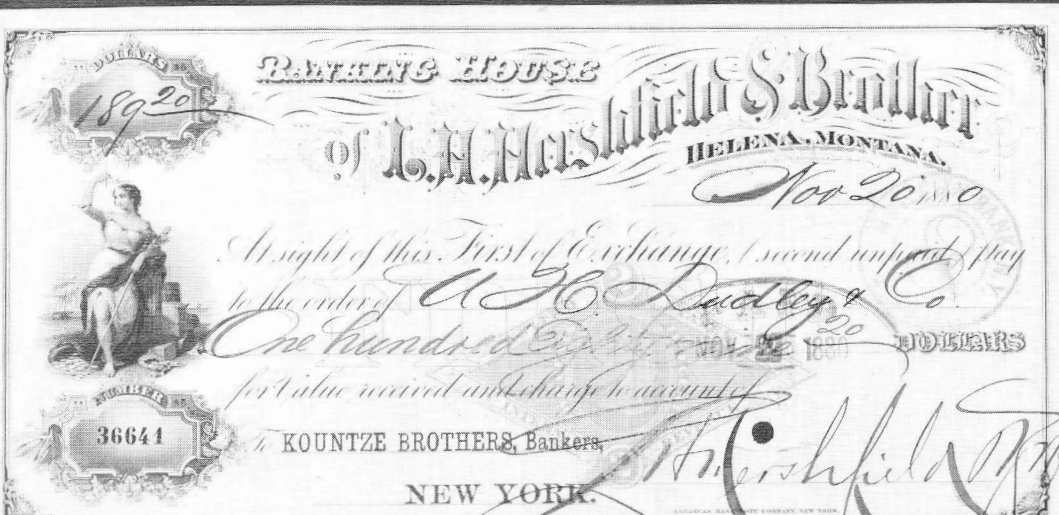 DOLLARS
189 20
BANKING HOUSE
of L.H. Hershfield & Brother
HELENA, MONTANA.
Nov 20 1880
At sight of this First of Exchange, (second unpaid) pay
to the order of U H Dudley & Co
One hundred Eighty nine 20 DOLLARS
NOV 1880
for Value received and charge to account of
NUMBER
36641
To KOUNTZE BROTHERS, Bankers,
L H Hershfield
NEW YORK.